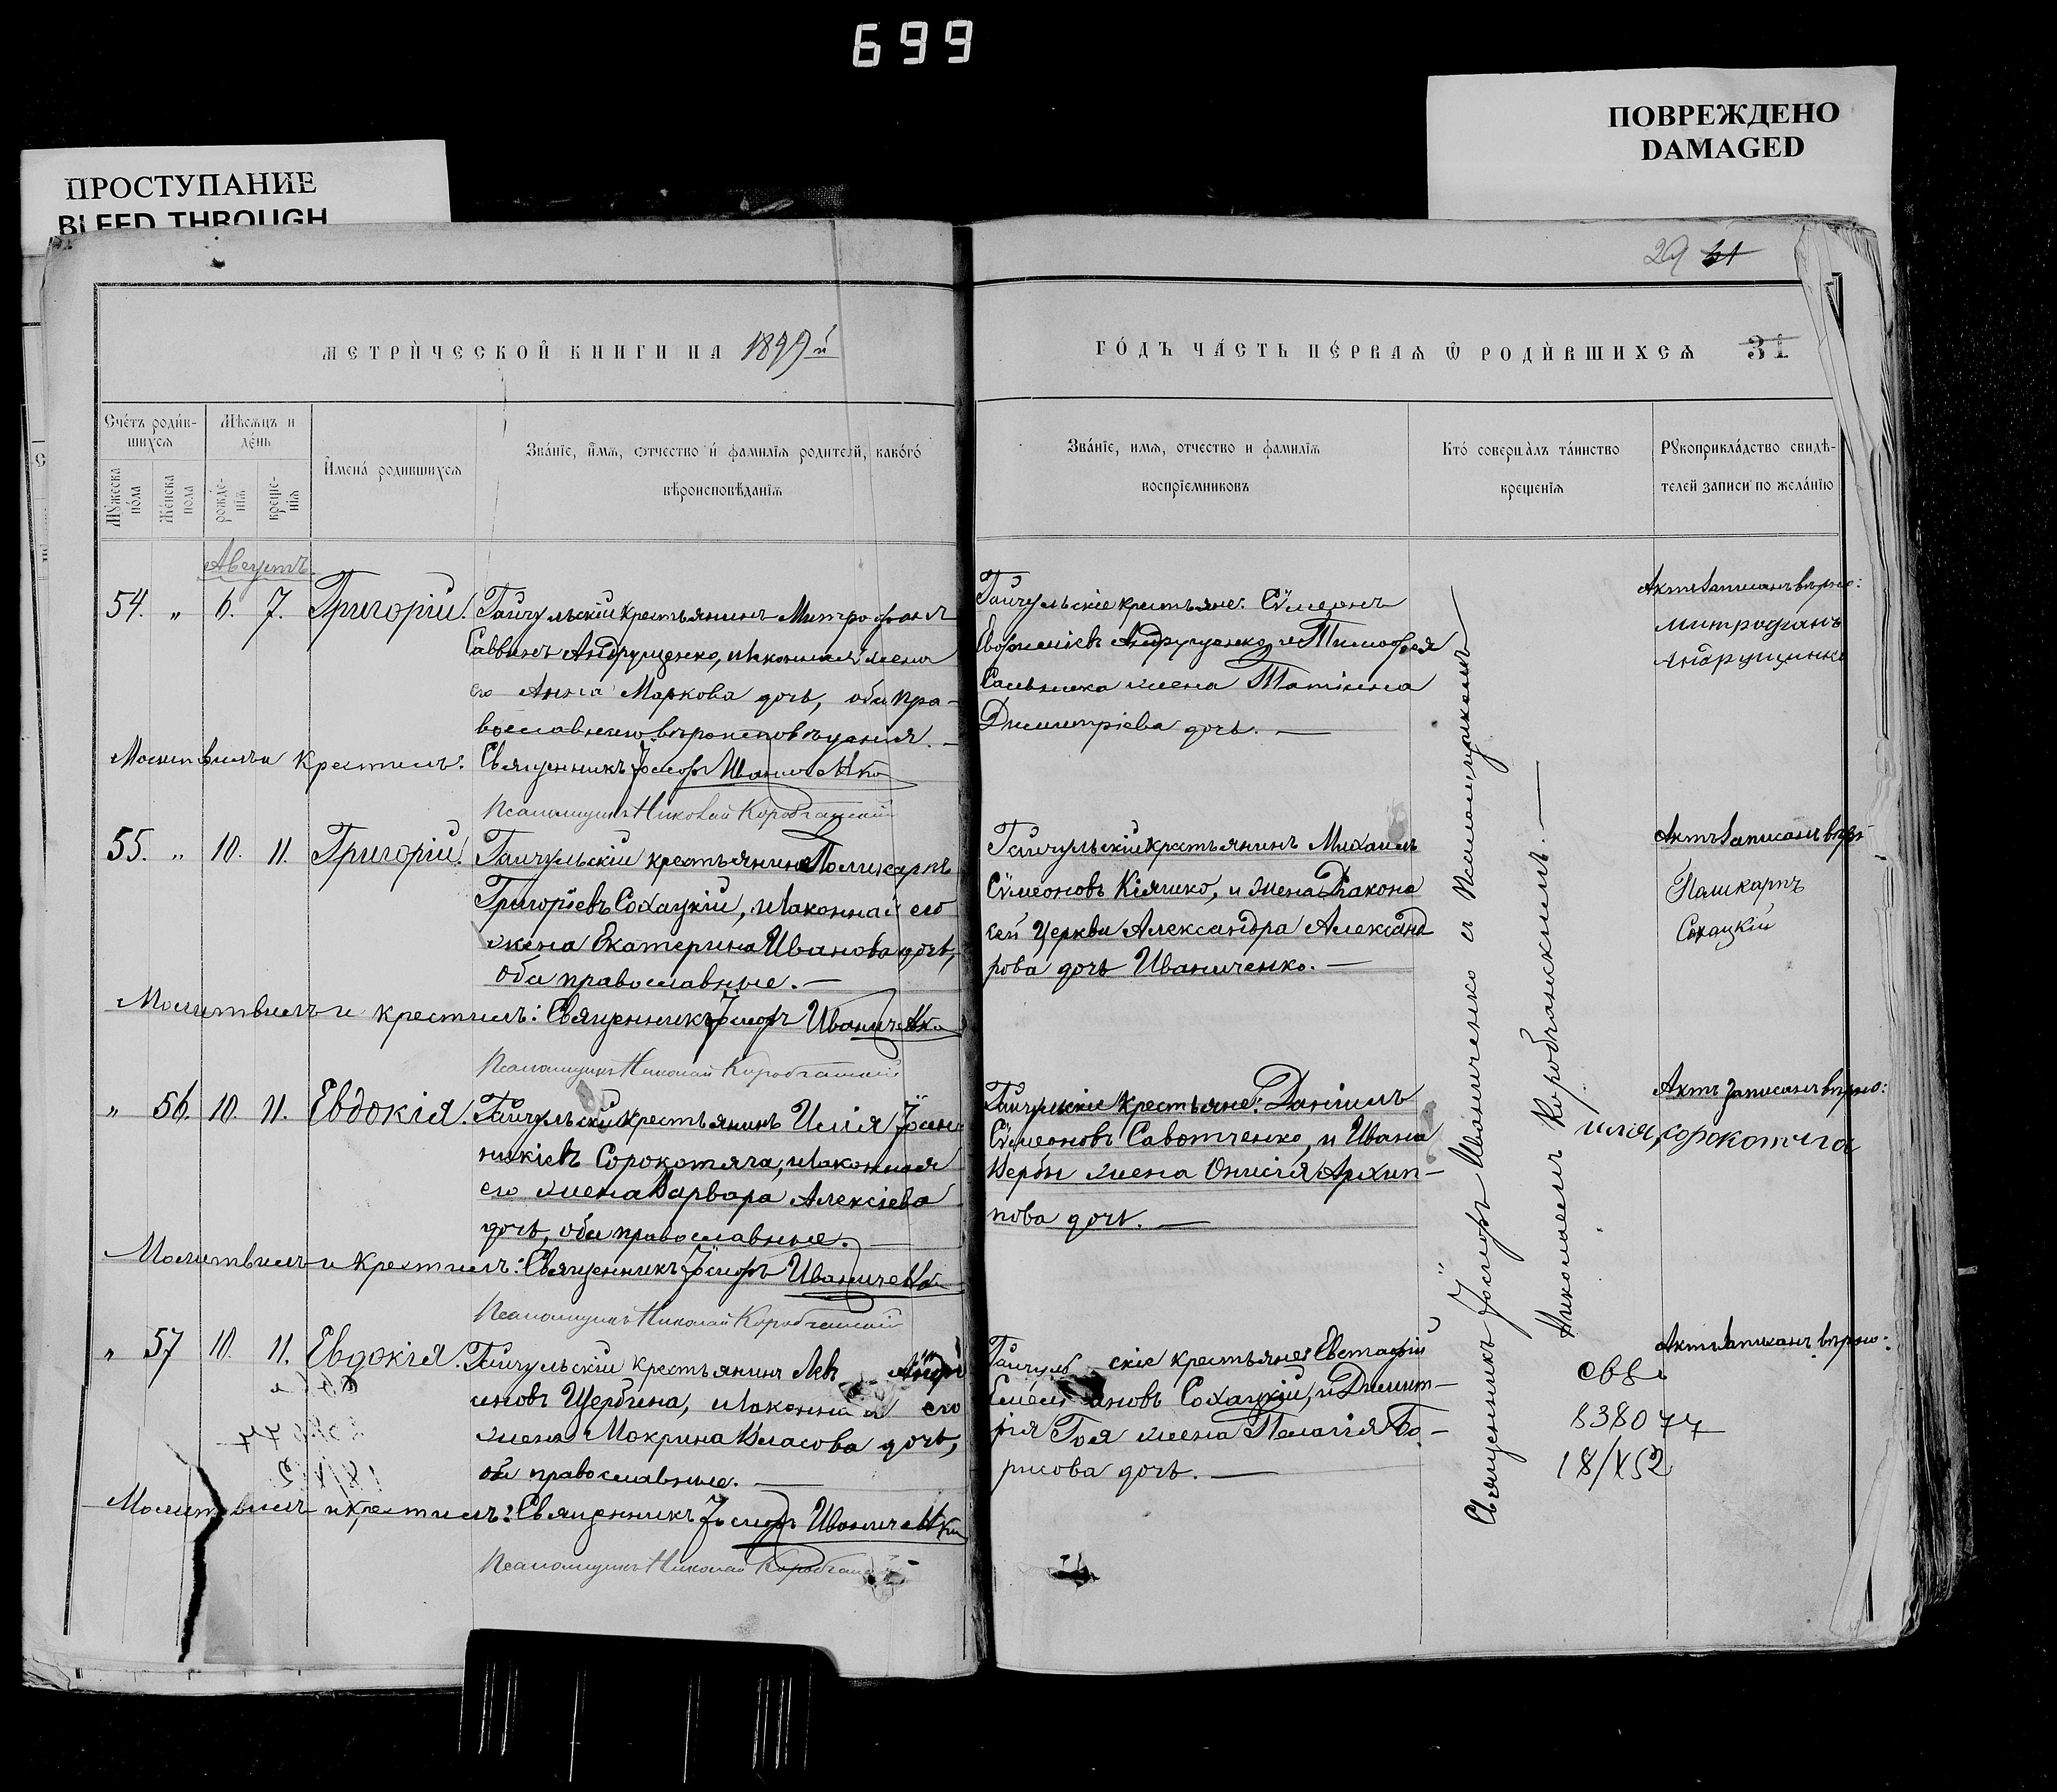 699
ПОВРЕЖДЕНО
DAMAGED
ПРОСТУПАНИЕ
BLEED THROUGH
29 31
МЕТРИ́ЧЕСКОЙ КНИГИ НА 1899й
ГО́ДЪ ЧА́СТЬ ПЕ́РВАѦ Ѿ РОДИ́ВШИХСѦ 31
Сче́тъ роди́в-
шихсѧ
Мѣсѧцъ и
де́нь
Мꙋжеска
по́ла
Же́нска
пола
рожде́-
нїѧ
креще-
нїѧ
И҆мена́ родившихсѧ
Зва́нїе, и҆́мѧ, ѻтчество и҆ фамилїѧ родителй, како́гѡ
вѣроисповѣ́данїѧ
Зва́нїе, имѧ, отчество и фамилїѧ
воспрїемниковъ
Кто́ соверша́лъ та́инство
крещенїѧ
Рꙋкоприкла́дство свидѣ́-
телей записи по жела́нїю
Августъ.
54. „ 6. 7. Григорій. Гайчульскій крестьянинъ Митрофанъ
Саввинъ Андрущенко, и законная жена
его Анна Маркова дочь, оба пра-
вославнаго вѣроисповѣданія. —
Молитвилъ и крестилъ: Священникъ Іосифъ Иваниченко
Псаломщикъ Николай Коробчанскій
Гайчульскіе крестьяне: Сѵмеонъ
Андрущенко, и Тимофея
жена Татіана
Димитріева дочь. —
Актъ записанъ вѣрно:
Митрофанъ
Андрущинко
55. „ 10. 11. Григорій. Гайчульскій крестьянинъ Поликарпъ
Григоріевъ Сохацкій, и законная его
жена Екатерина Иванова дочь,
оба православные. —
Молитвилъ и крестилъ: Священникъ Іосифъ Иваниченко
Псаломщикъ Николай Коробчанскій
Гайчульскій крестьянинъ Михаилъ
Сѵмеоновъ Кіяшко, и жена Діакона
сей Церкви Александра Александ
рова дочь Иваниченко. —
Актъ записанъ вѣр
Паликарпъ
Сохацкій
„ 56. 10. 11. Евдокія. Гайчульскій крестьянинъ Илія Іоан-
никіевъ Сорокотяга, и законная
его жена Варвара Алексіева
дочь, оба православные. —
Молитвилъ и крестилъ: Священникъ Іосифъ Иваниченко
Псаломщикъ Николай Коробчанскій
Гайчульскіе крестьяне: Даніилъ
Сѵмеоновъ Савотченко, и Ивана
Вербы жена Онисія Архип-
пова дочь. —
Актъ записанъ вѣрно:
илія сорокотяга
„ 57 10. 11. Евдокія. Гайчульскій крестьянинъ Андр
иновъ Щербина, и законная его
жена Мокрина Власова дочь,
оба православные. —
Молитвилъ и крестилъ: Священникъ Іосифъ Иваниченко
Псаломщикъ Николай Коробчанскій
Гайчульскіе крестьяне: Евстафій
Емеліановъ Сохацкій, и Димит-
рія Гоя жена Пелагія Бо-
рисова дочь. —
Актъ записанъ вѣрно:
свв.
838077
18/X52
Священникъ Іосифъ Иваниченко съ Псаломщикомъ
Николаемъ Коробчанскимъ. —